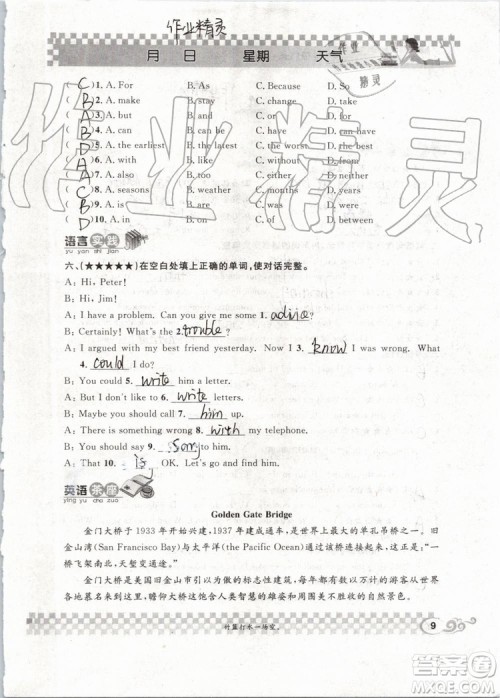 作业精灵
月 日 星期 天气
作业精灵
( C )1. A. For B. As C. Because D. So
( B )2. A. make B. stay C. change D. take
( A )3. A. and B. or
( D )5. A. the earliest B. the latest C. the worst
( A )7. A. also B. and C. either
( B )8. A. seasons B. weeks C. months D. years
A. can B. are C. have
( D )10. A. in B. an C. at D. on
作业精灵
语言实践
yu yan shi jian
六、(★★★★★)在空白处填上正确的单词,使对话完整。
A: Hi, Peter!
B: Hi, Jim!
A: I have a problem. Can you give me some 1. advice?
B: Certainly! What's the 2. trouble?
A: I argued with my best friend yesterday. Now I 3. know I was wrong. What
4. could I do?
B: You could 5. write him a letter.
A: But I don't like to 6. write letters.
B: Maybe you should 7. call him up.
A: There is something wrong 8. with my telephone.
B: You should say 9. sorry to him.
A: That 10. is OK. Let's go and find him.
英语茶座
ying yu cha zuo
Golden Gate Bridge
金门大桥于 1933 年开始兴建,1937 年建成通车,是世界上最大的单孔吊桥之一。旧
金山湾(San Francisco Bay)与太平洋(the Pacific Ocean)通过这座桥连接到了一起,“一
桥飞架南北,天堑变通途”。
金门大桥是美国旧金山市引以为傲的标志性建筑,每年都有数以万计的游客从世界
各地慕名而来,瞻仰这座大桥的人类智慧的雄姿和周围如诗如画的美景。
竹篮打水一场空。
9
答案圈
MXQE.COM